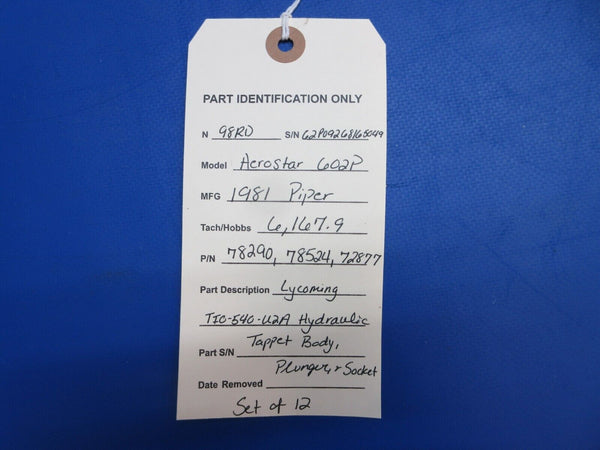 PART IDENTIFICATION ONLY
N 98RD S/N 62P09268165049
Model Aerostar 602P
MFG 1981 Piper
Tach/Hobbs 6,167.9
P/N 78290, 78524, 72877
Part Description Lycoming
TIO-540-U2A Hydraulic
Part S/N Tappet Body,
Plunger, + Socket
Date Removed
Set of 12